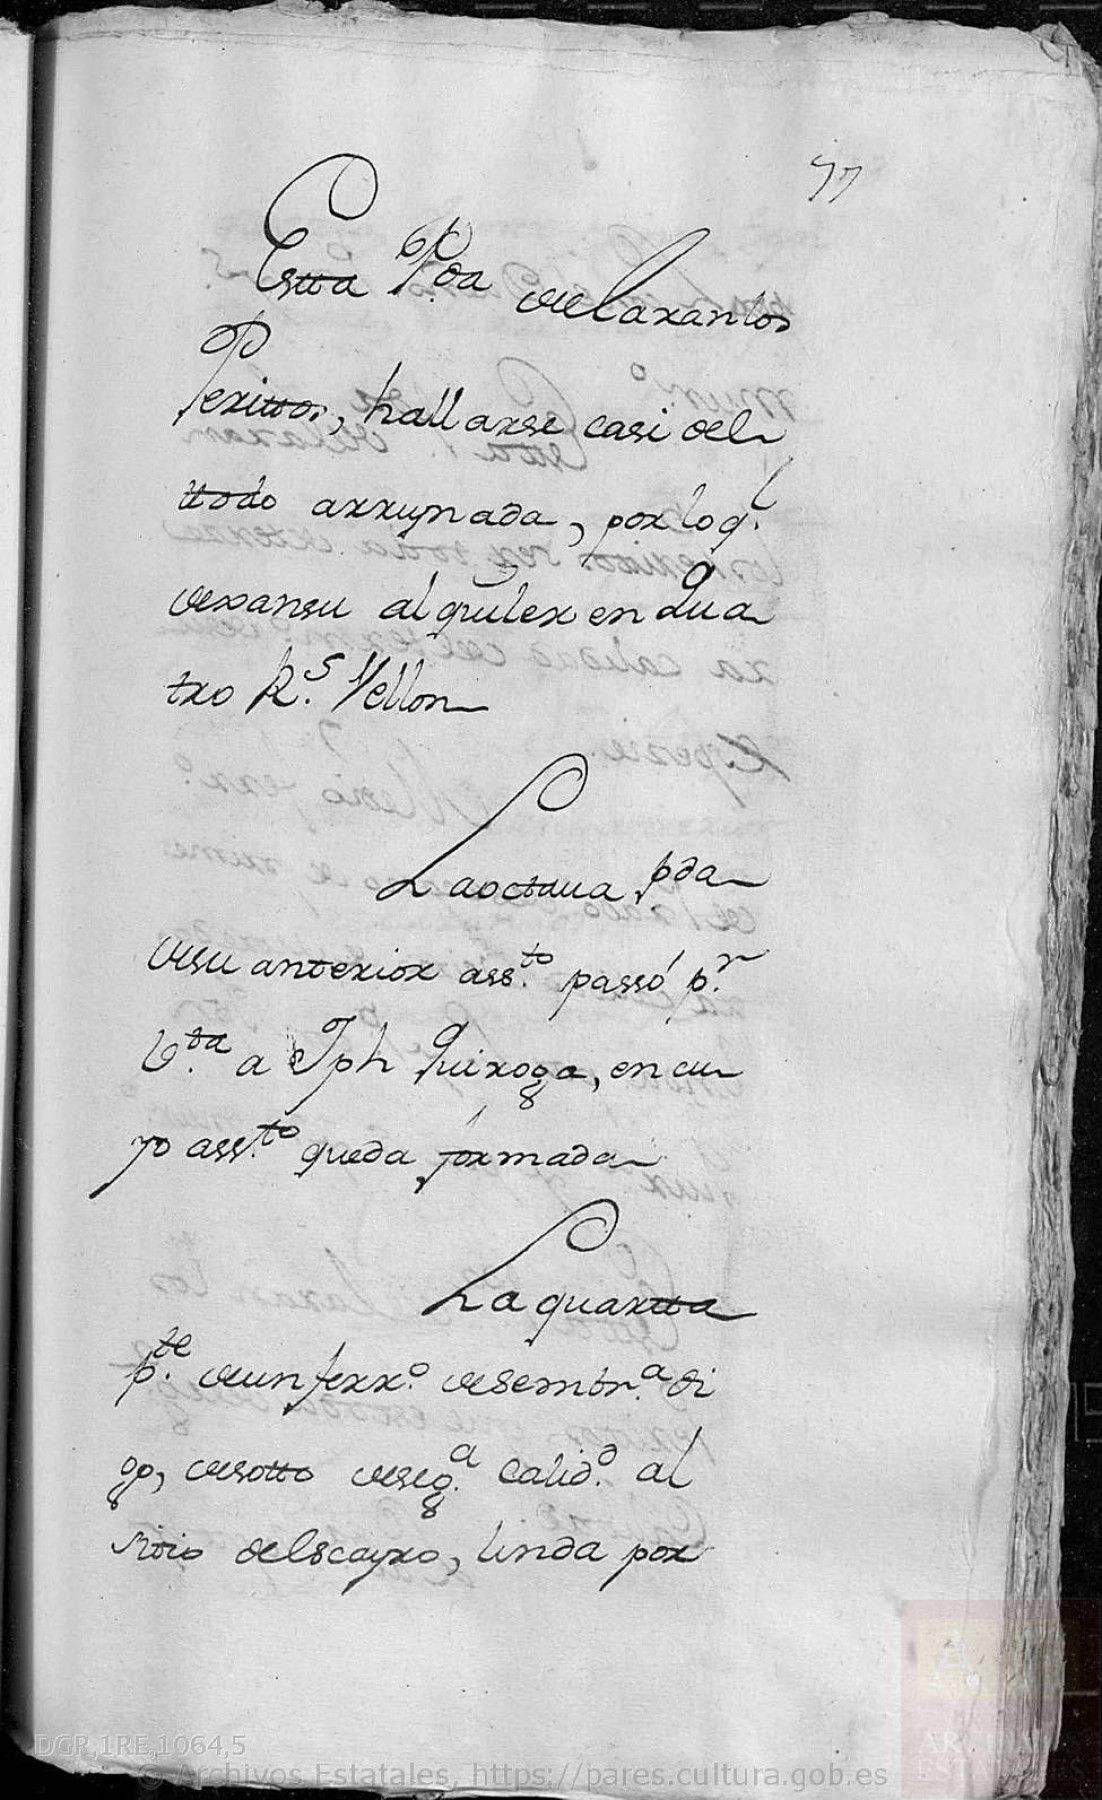 77
Estta P.da declaran los
Perittos, hallarse casi del
ttodo arruynada, por lo q.l
dexan su alquiler en Qua
tro R.s Vellon
La octaua p.da
de su anterior ass.to passó p.r
V.ta a Jph Quiroga, en cu
yo ass.to queda formada
La quartta
p.te de un ferr.o de sembr.a di
go, de sotto de seg.a calid.d al
sitio del scayro, linda por
DGR,1RE,1064,5
© Archivos Estatales, https://pares.cultura.gob.es